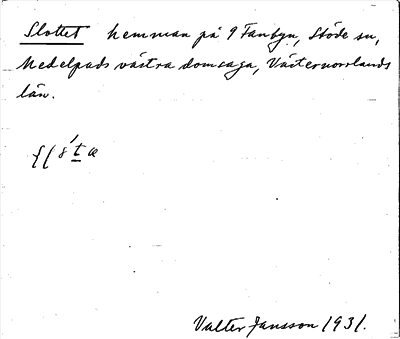 Slottet hemman på 9 Fanbyn, Stöde sn,
Medelpads västra domsaga, Västernorrlands
län.
Valter Jansson 1931.